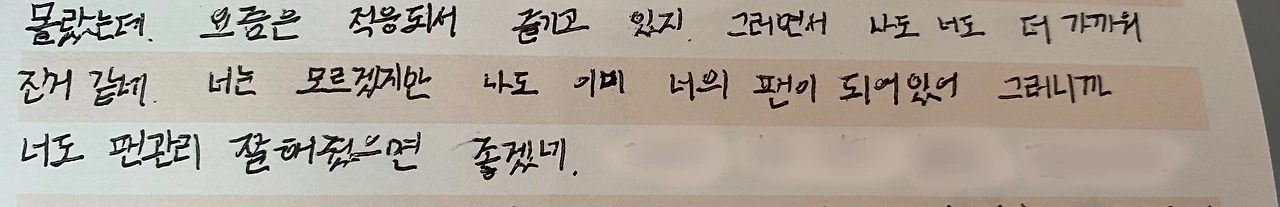 몰랐는데. 요즘은 적응되서 즐기고 있지. 그러면서 나도 너도 더 가까워
진거 같네. 너는 모르겠지만 나도 이미 너의 팬이 되어있어 그러니까
너도 팬관리 잘해줬으면 좋겠네.